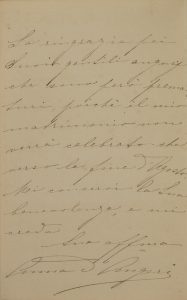 La ringrazio pei
Suoi gentili auguri
che sono però prema
turi, poichè il mio
matrimonio non
verrà celebrato che
verso la fine d'Agosto
Mi conservi la Sua
benevolenza, e mi
creda
Sua affma
Anna d'Angeri